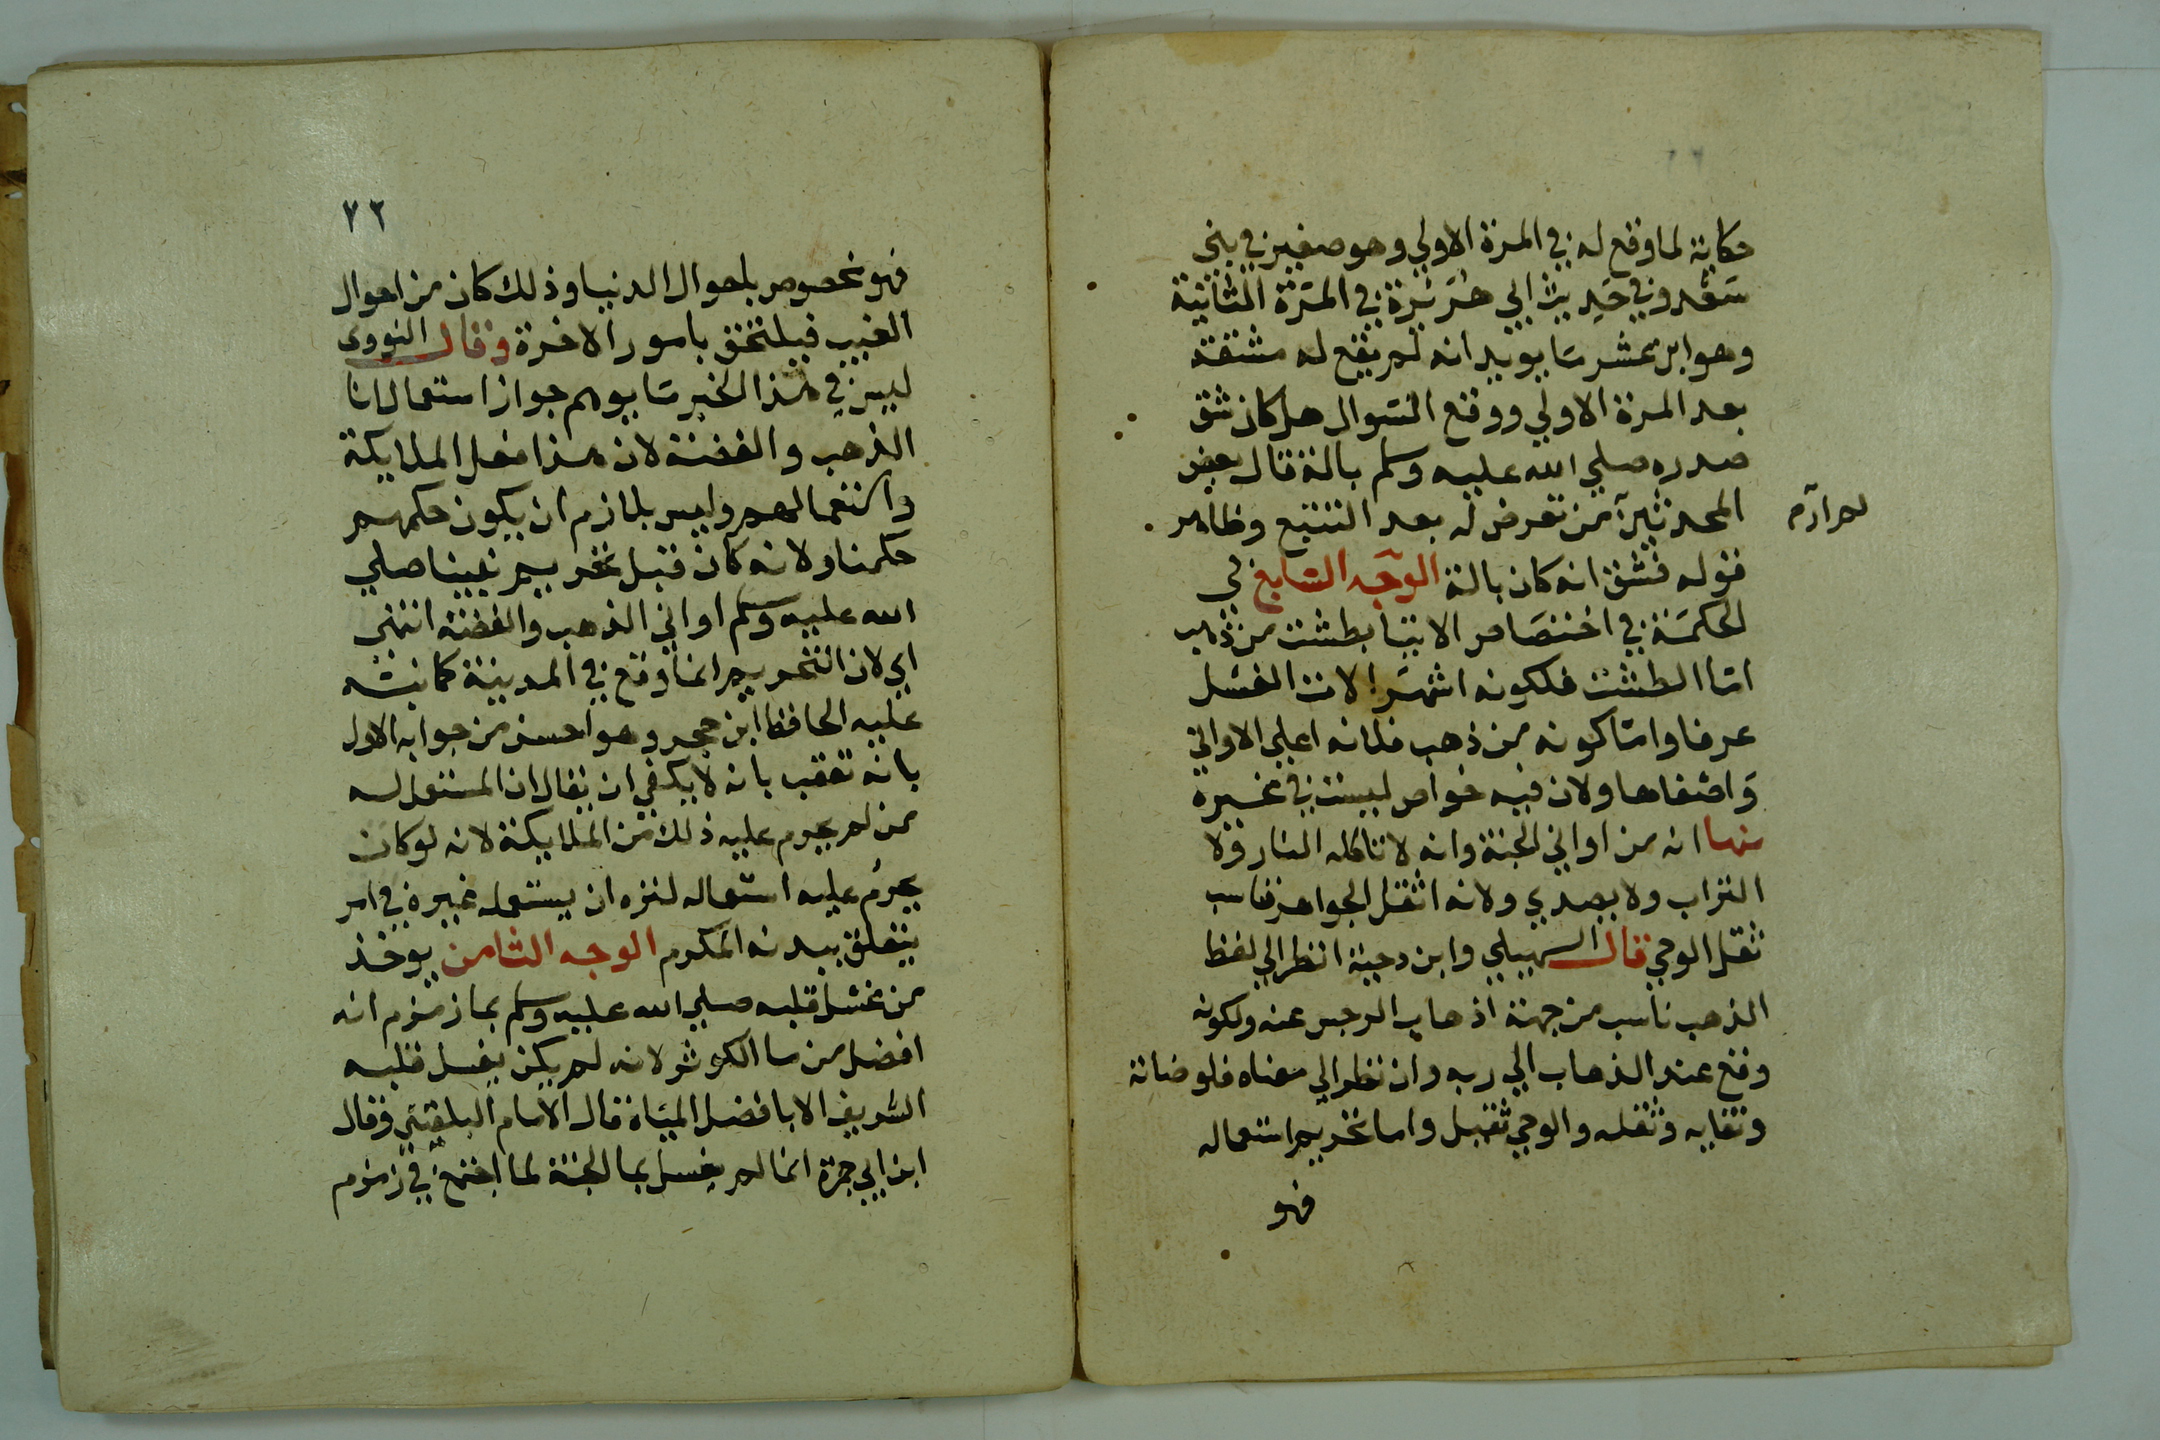 حكاية لما وقع له في المرة الاولي وهو صغير في بني
سعد وفي حديث ابي هريرة في المرة الثانية
وهو ابن عشر سا يويد انه لم يقع له مشقة
بعد المرة الاولي ووقع السوال هل كان شق
صدره صلي الله عليه وسلم بالة قال بعض
المحدثين من تعرض له بعد التتبع وظاهر
لم ار
قوله فشق انه كان بالة الوجه السابع في
الحكمة في اختصاص الاتيا بطشت من ذهب
اما الطشت فلكونه اشهر الات الغسل
عرفا واما كونه من ذهب فلانه اعلي الاواني
واصفاها ولان فيه خواص ليست في غيره
منها انه من اواني الجنة وانه لا تاكله النار ولا
التراب ولا يصدي ولانه اثقل الجواهر فناسب
ثقل الوحي قال السهيلي وابن دحية انظر الي لفظ
الذهب ناسب من جهة اذهاب الرجس عنه ولكونه
وقع عند الذهاب الي ربه وان نظر الي معناه فلوضائة
ونقايه وثقله والوحي ثقيل واما تحريم استعماله
فهو
٧٢
فهو مخصوص باحوال الدنيا وذلك كان من احوال
الغيب فيلتحق بامور الاخرة وقال النووي
ليس في هذا الخبر ما يوهم جواز استعمال انا
الذهب والفضة لان هذا فعل الملايكة
واستعمالهم وليس بلازم ان يكون حكمهم
حكمنا ولانه كان قبل تحريم نبينا صلي
الله عليه وسلم اواني الذهب والفضة انتهي
اي لان التحريم انما وقع في المدينة كما نبه
عليه الحافظ ابن حجر وهو احسن من جوابه الاول
بانه تعقب بانه لا يكفي ان يقال ان المستعمل له
من لم يحرم عليه ذلك من الملايكة لانه لو كان
يحرم عليه استعماله لنزه ان يستعمله غيره في امر
يتعلق ببدنه المكرم الوجه الثامن يوخذ
من غسل قلبه صلي الله عليه وسلم بما زمزم انه
افضل من ما الكوثر لانه لم يكن يغسل قلبه
الشريف الا بافضل المياه قال الامام البلقيني وقال
ابن ابي جمرة انما لم يغسل بما الجنة لما اجتمع في زمزم